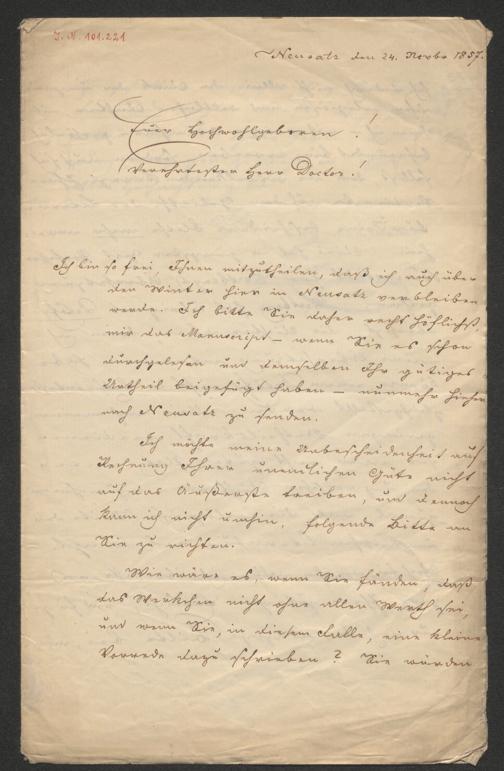 I. N. 101.221
Neusatz den 24. Novbr 1857.
Euer Hochwohlgeboren!
Verehrtester Herr Doctor!
Ich bin so frei, Ihnen mitzutheilen, daß ich auch über
den Winter hier in Neusatz verbleiben
werde. Ich bitte Sie daher recht höflichst,
mir das Manuscript – wenn Sie es schon
durchgelesen und demselben Ihr gütiges
Urtheil beigefügt haben – nunmehr hieher
nach Neusatz zu senden.
Ich möchte meine Unbescheidenheit auf
Rechnung Ihrer unendlichen Güte nicht
auf das Äußerste treiben, und dennoch
kann ich nicht umhin, folgende Bitte an
Sie zu richten.
Wie wäre es, wenn Sie fänden, daß
das Werkchen nicht ohne allen Werth sei,
und wenn Sie, in diesem Falle, eine kleine
Vorrede dazu schrieben? Sie würden